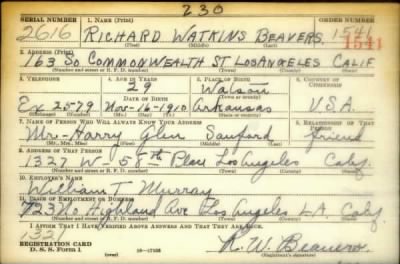 230
SERIAL NUMBER 1. NAME (Print) ORDER NUMBER
2616 RICHARD WATKINS BEAVERS 1541
1541
(First) (Middle) (Last)
2. ADDRESS (Print)
163 SO COMMONWEALTH ST LOS ANGELES CALIF
(Number and street or R. F. D. number) (Town) (County) (State)
3. TELEPHONE 4. AGE IN YEARS 5. PLACE OF BIRTH 6. COUNTRY OF CITIZENSHIP
29 Watson
DATE OF BIRTH (Town or county)
Ex 2579 Nov-16-1910 Arkansas U.S.A.
(Exchange) (Number) (Mo.) (Day) (Yr.) (State or country)
7. NAME OF PERSON WHO WILL ALWAYS KNOW YOUR ADDRESS 8. RELATIONSHIP OF THAT PERSON
Mr- Harry Glen Sanford friend
(Mr., Mrs., Miss) (First) (Middle) (Last)
9. ADDRESS OF THAT PERSON
1327 W- 58th Place Los Angeles Calif
(Number and street or R. F. D. number) (Town) (County) (State)
10. EMPLOYER'S NAME
William T Murray
11. PLACE OF EMPLOYMENT OR BUSINESS
723 No Highland Ave Los Angeles L.A. Calif
(Number and street or R. F. D. number) (Town) (County) (State)
I AFFIRM THAT I HAVE VERIFIED ABOVE ANSWERS AND THAT THEY ARE TRUE.
REGISTRATION CARD
D. S. S. Form 1 R. W. Beavers
(Registrant's signature)